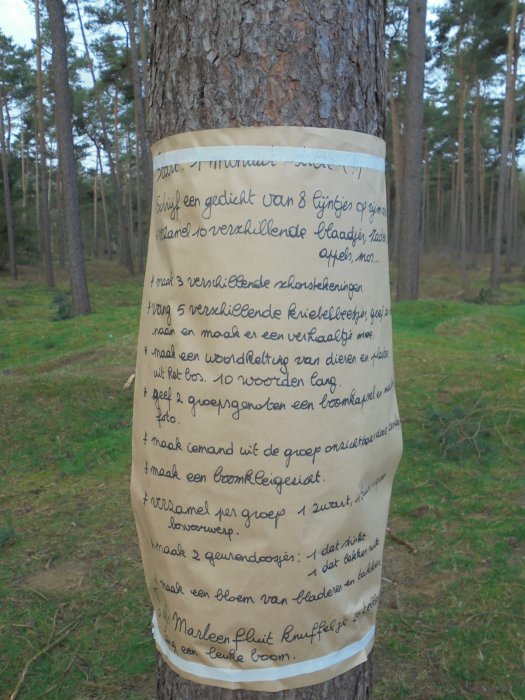 Schrijf een gedicht van 8 lijntjes op rijm
verzamel 10 verschillende blaadjes,
appels, mos...
+ maak 3 verschillende schorstekeningen
+ vang 5 verschillende kriebelbeestjes, geef ze
naam en maak er een verhaaltje
+ maak een woordketting van dieren en
uit het bos. 10 woorden lang.
+ geef 2 groepsgenoten een boomkapsel en
foto.
+ maak iemand uit de groep onzichtbaar
+ maak een boomkleigezicht.
+ verzamel per groep 1 zwart, 1
bosvoorwerp.
+ maak 2 geurendoosjes: 1 dat stinkt
1 dat lekker ruikt
+ maak een bloem van bladeren en takken
Marleen fluit knuffel je
een leuke boom.